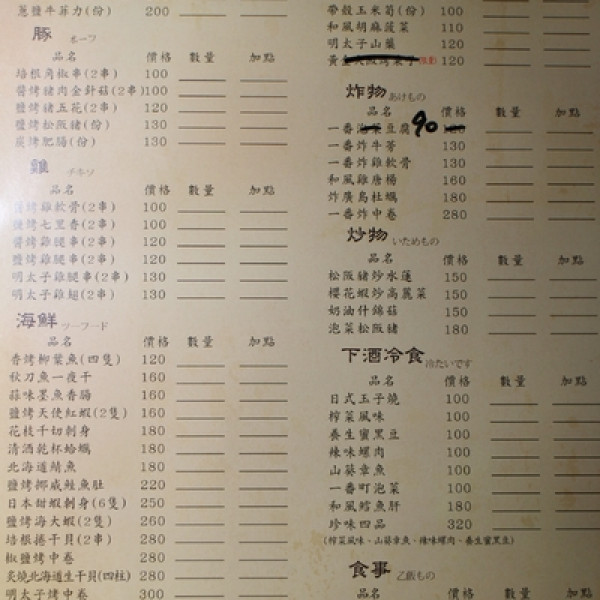 蔥鹽牛菲力(份) 200
豚 ホーフ
品名 價格 數量 加點
培根角椒串(2串) 100
醬烤豬肉金針菇(2串) 100
鹽烤豬五花(2串) 120
鹽烤松阪豬(份) 130
炭烤肥腸(份) 130
雞 チキソ
品名 價格 數量 加點
醬烤雞軟骨(2串) 100
鹽烤七里香(2串) 100
醬烤雞腿串(2串) 120
鹽烤雞腿串(2串) 120
明太子雞腿串(2串) 130
明太子雞翅(2串) 130
海鮮 ツーフード
品名 價格 數量 加點
香烤柳葉魚(四隻) 120
秋刀魚一夜干 160
蒜味墨魚香腸 160
鹽烤天使紅蝦(2隻) 160
花枝千切刺身 180
清酒乾杯蛤蠣 180
北海道鯖魚 180
鹽烤挪威鮭魚肚 220
日本甜蝦刺身(6隻) 250
鹽烤海大蝦(2隻) 260
培根捲干貝(2串) 280
椒鹽烤中卷 280
炙燒北海道生干貝(四粒) 280
明太子烤中卷 300
帶殼玉米筍(份) 100
和風胡麻菠菜 110
明太子山藥 120
120
炸物 あげもの
品名 價格 數量 加點
一番 豆腐 90 120
一番炸牛蒡 130
一番炸雞軟骨 130
和風雞唐楊 160
炸廣島牡蠣 180
一番炸中卷 280
炒物 いためもの
品名 價格 數量 加點
松阪豬炒水蓮 150
櫻花蝦炒高麗菜 150
奶油什錦菇 150
泡菜松阪豬 180
下酒冷食 冷たいです
品名 價格 數量 加點
日式玉子燒 100
榨菜風味 100
養生蜜黑豆 100
辣味螺肉 100
山葵章魚 100
一番町泡菜 100
和風鱈魚肝 180
珍味四品 320
(榨菜風味、山葵章魚、辣味螺肉、養生蜜黑豆)
食事 乙飯もの
品名 價格 數量 加點